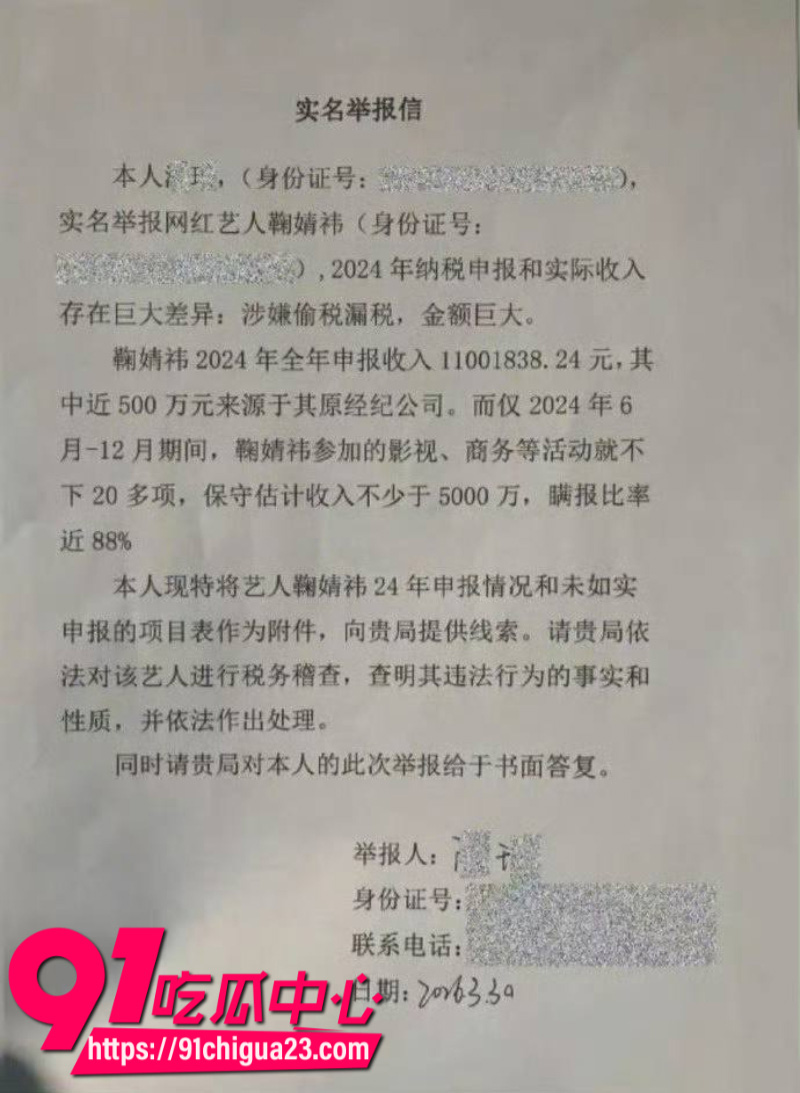 实名举报信
本人,（身份证号：),
实名举报网红艺人鞠婧祎（身份证号：
）,2024 年纳税申报和实际收入
存在巨大差异：涉嫌偷税漏税，金额巨大。
鞠婧祎 2024 年全年申报收入 11001838.24 元,其
中近 500 万元来源于其原经纪公司。而仅 2024 年 6
月-12 月期间，鞠婧祎参加的影视、商务等活动就不
下 20 多项，保守估计收入不少于 5000 万，瞒报比率
近 88%
本人现特将艺人鞠婧祎 24 年申报情况和未如实
申报的项目表作为附件，向贵局提供线索。请贵局依
法对该艺人进行税务稽查，查明其违法行为的事实和
性质，并依法作出处理。
同时请贵局对本人的此次举报给于书面答复。
举报人：
身份证号：
联系电话：
日期：2026.3.30
91吃瓜中心
https://91chigua23.com